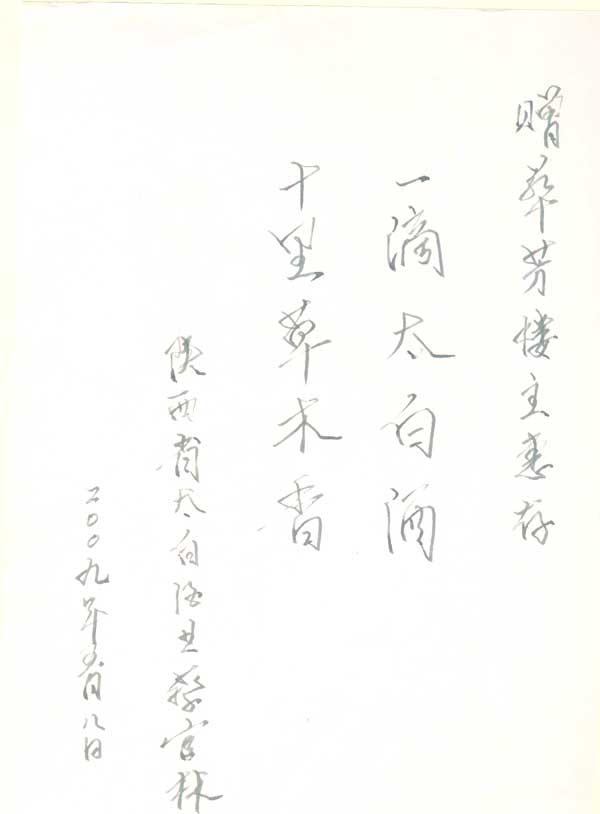 赠萃芳楼主惠存
一滴太白酒
十里草木香
陕西省太白酒业蔡官林
二〇〇九年五月八日